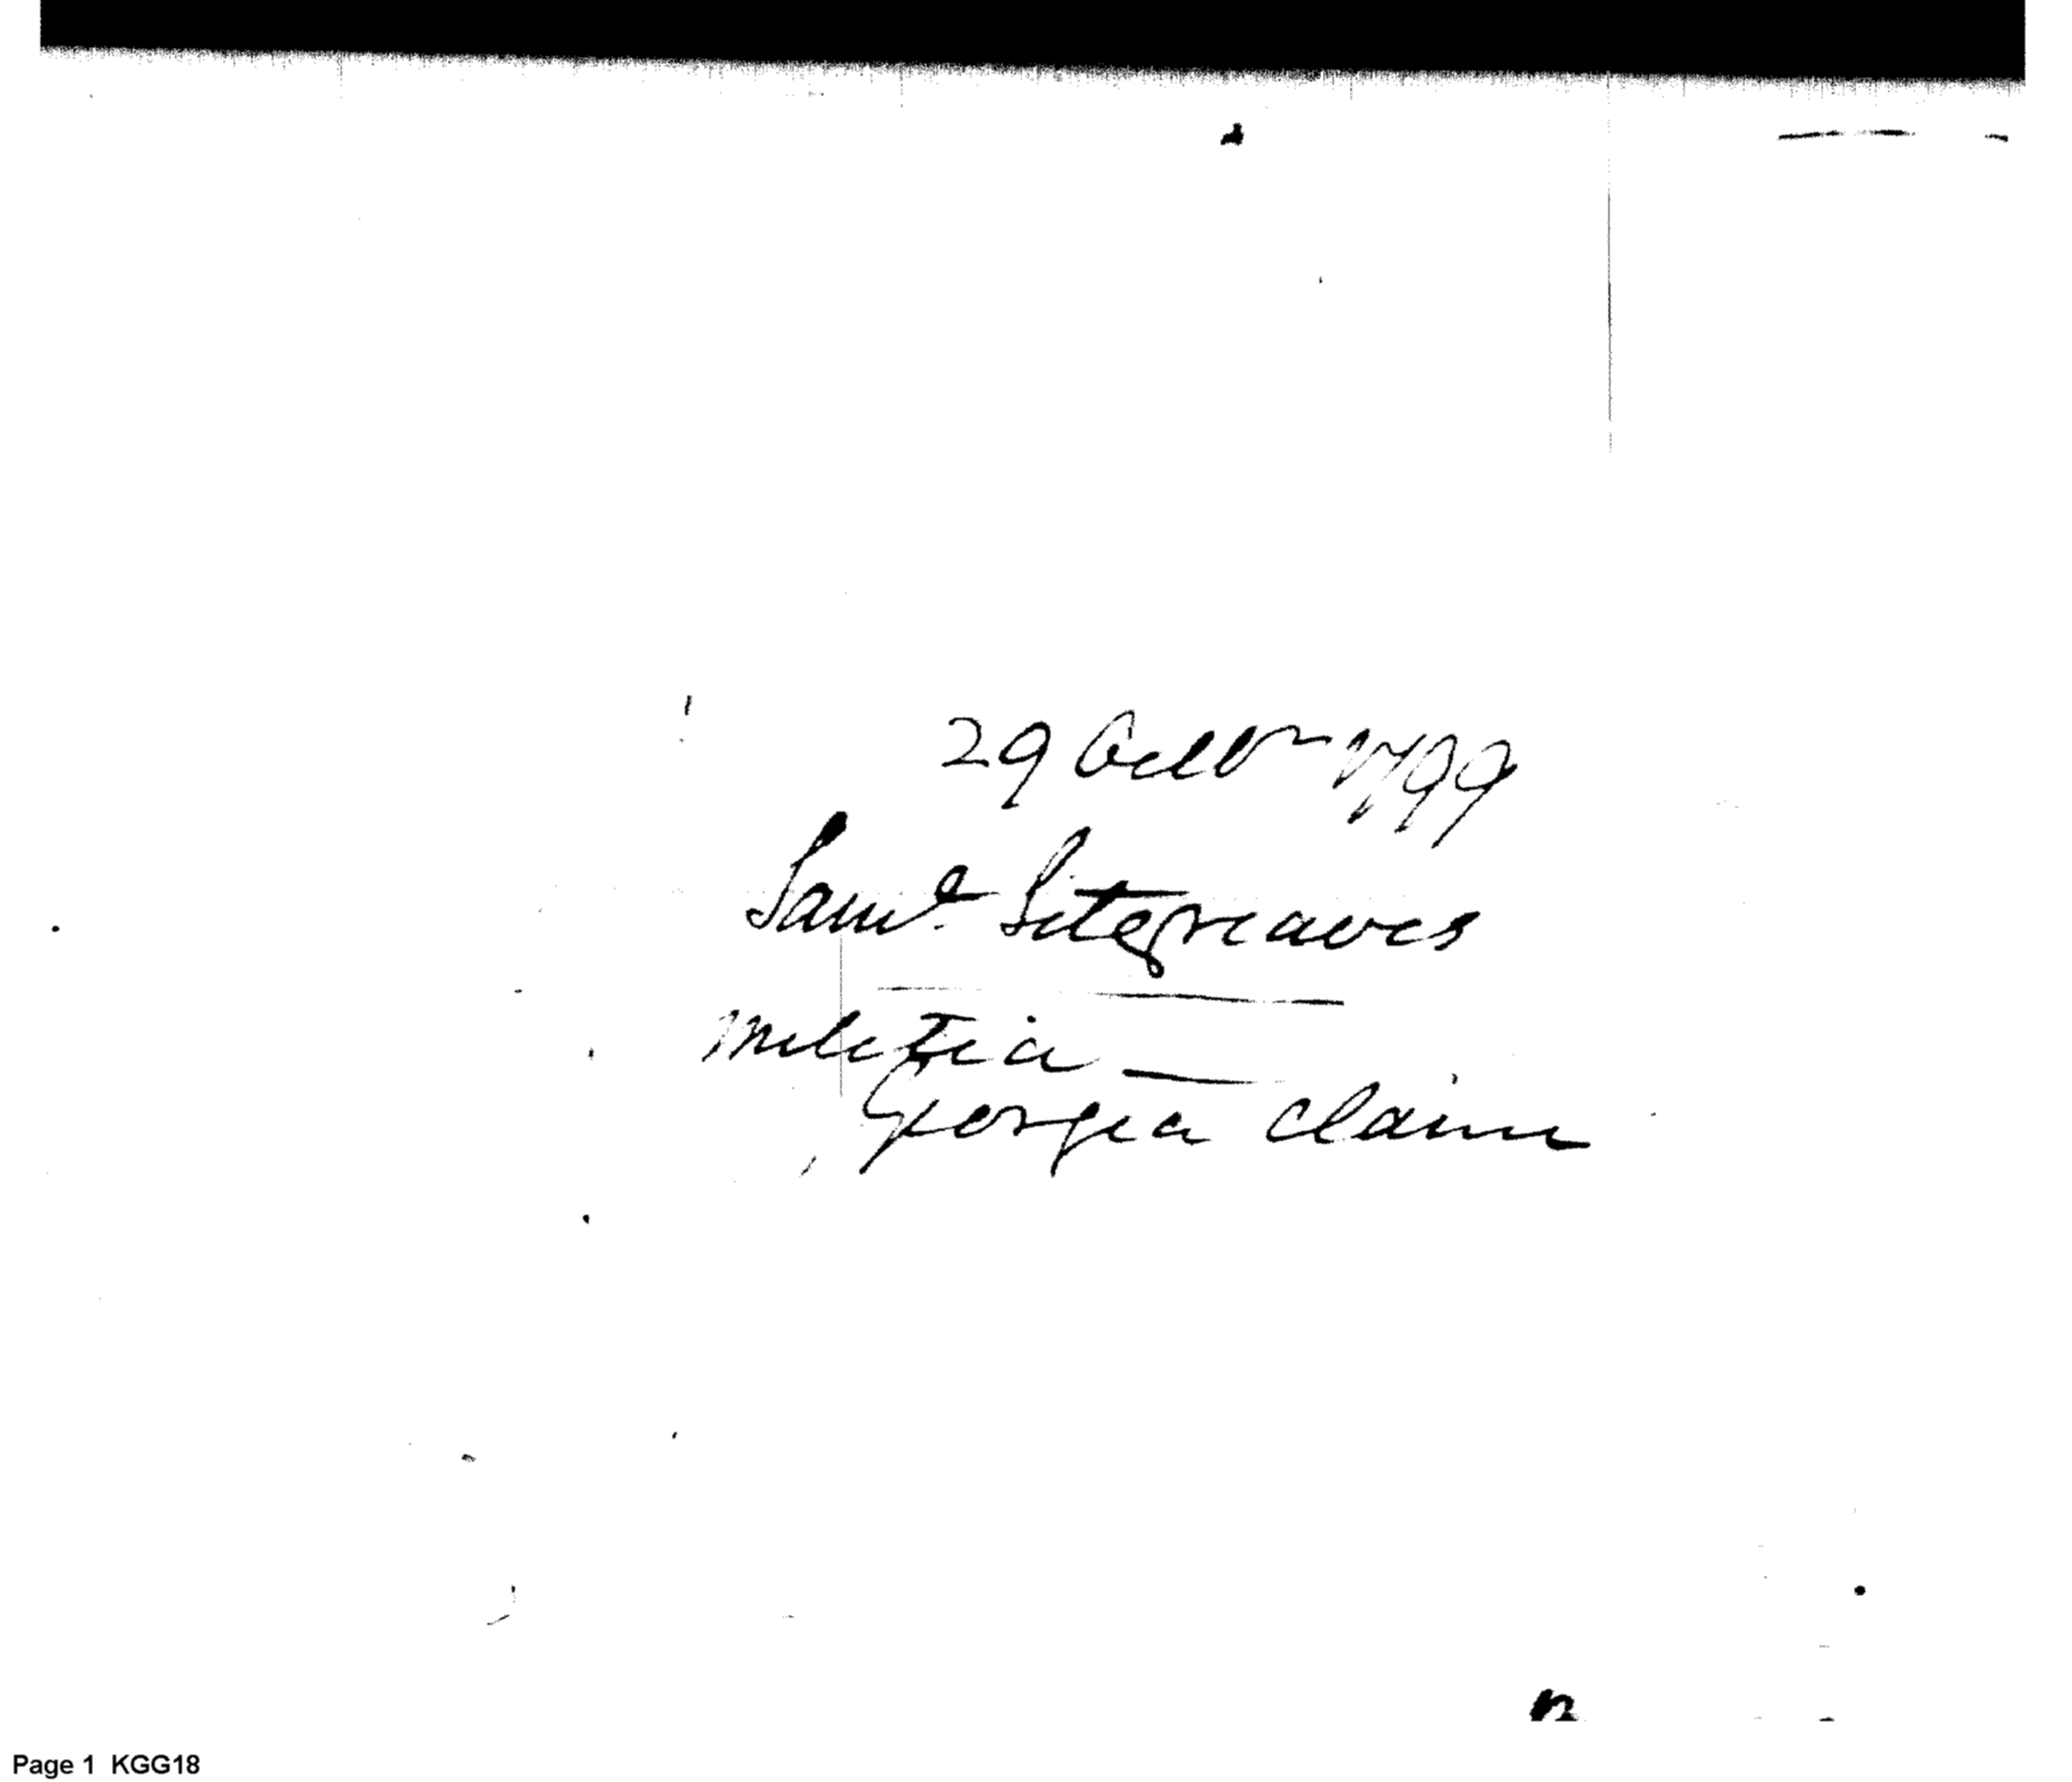 29 Octbr 1799
Saml. Sitgreaves
Militia —
Georgia Claim
Page 1 KGG18